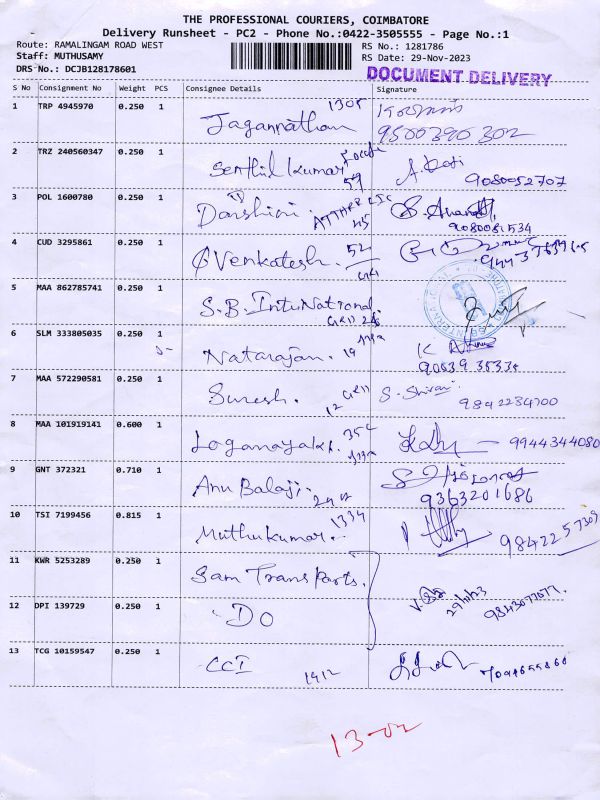 THE PROFESSIONAL COURIERS, COIMBATORE
Delivery Runsheet - PC2 - Phone No.:0422-3505555 - Page No.:1
Route: RAMALINGAM ROAD WEST RS No.: 1281786
Staff: MUTHUSAMY RS Date: 29-Nov-2023
DRS No.: DCJB128178601 DOCUMENT DELIVERY
S No Consignment No Weight PCS Consignee Details Signature
1 TRP 4945970 0.250 1 Jagannathan 1305
9500390302
2 TRZ 240560347 0.250 1 Senthil Kumar 59
9080052707
3 POL 1600780 0.250 1 Darshini 45
9080081534
4 CUD 3295861 0.250 1 Venkatesh. 52
5 MAA 862785741 0.250 1 S.B. InterNational
6 SLM 333805035 0.250 1 Natarajan. 19
7 MAA 572290581 0.250 1 Suresh. 12
9842234700
8 MAA 101919141 0.600 1 Loganayaki. 354
9944344080
9 GNT 372321 0.710 1 Anu Balaji.
9363201686
10 TSI 7199456 0.815 1 Muthukumar. 1334
9842257309
11 KWR 5253289 0.250 1 Sam Transports.
29/11/23
12 DPI 139729 0.250 1 DO
13 TCG 10159547 0.250 1 CCI 1912
13-02